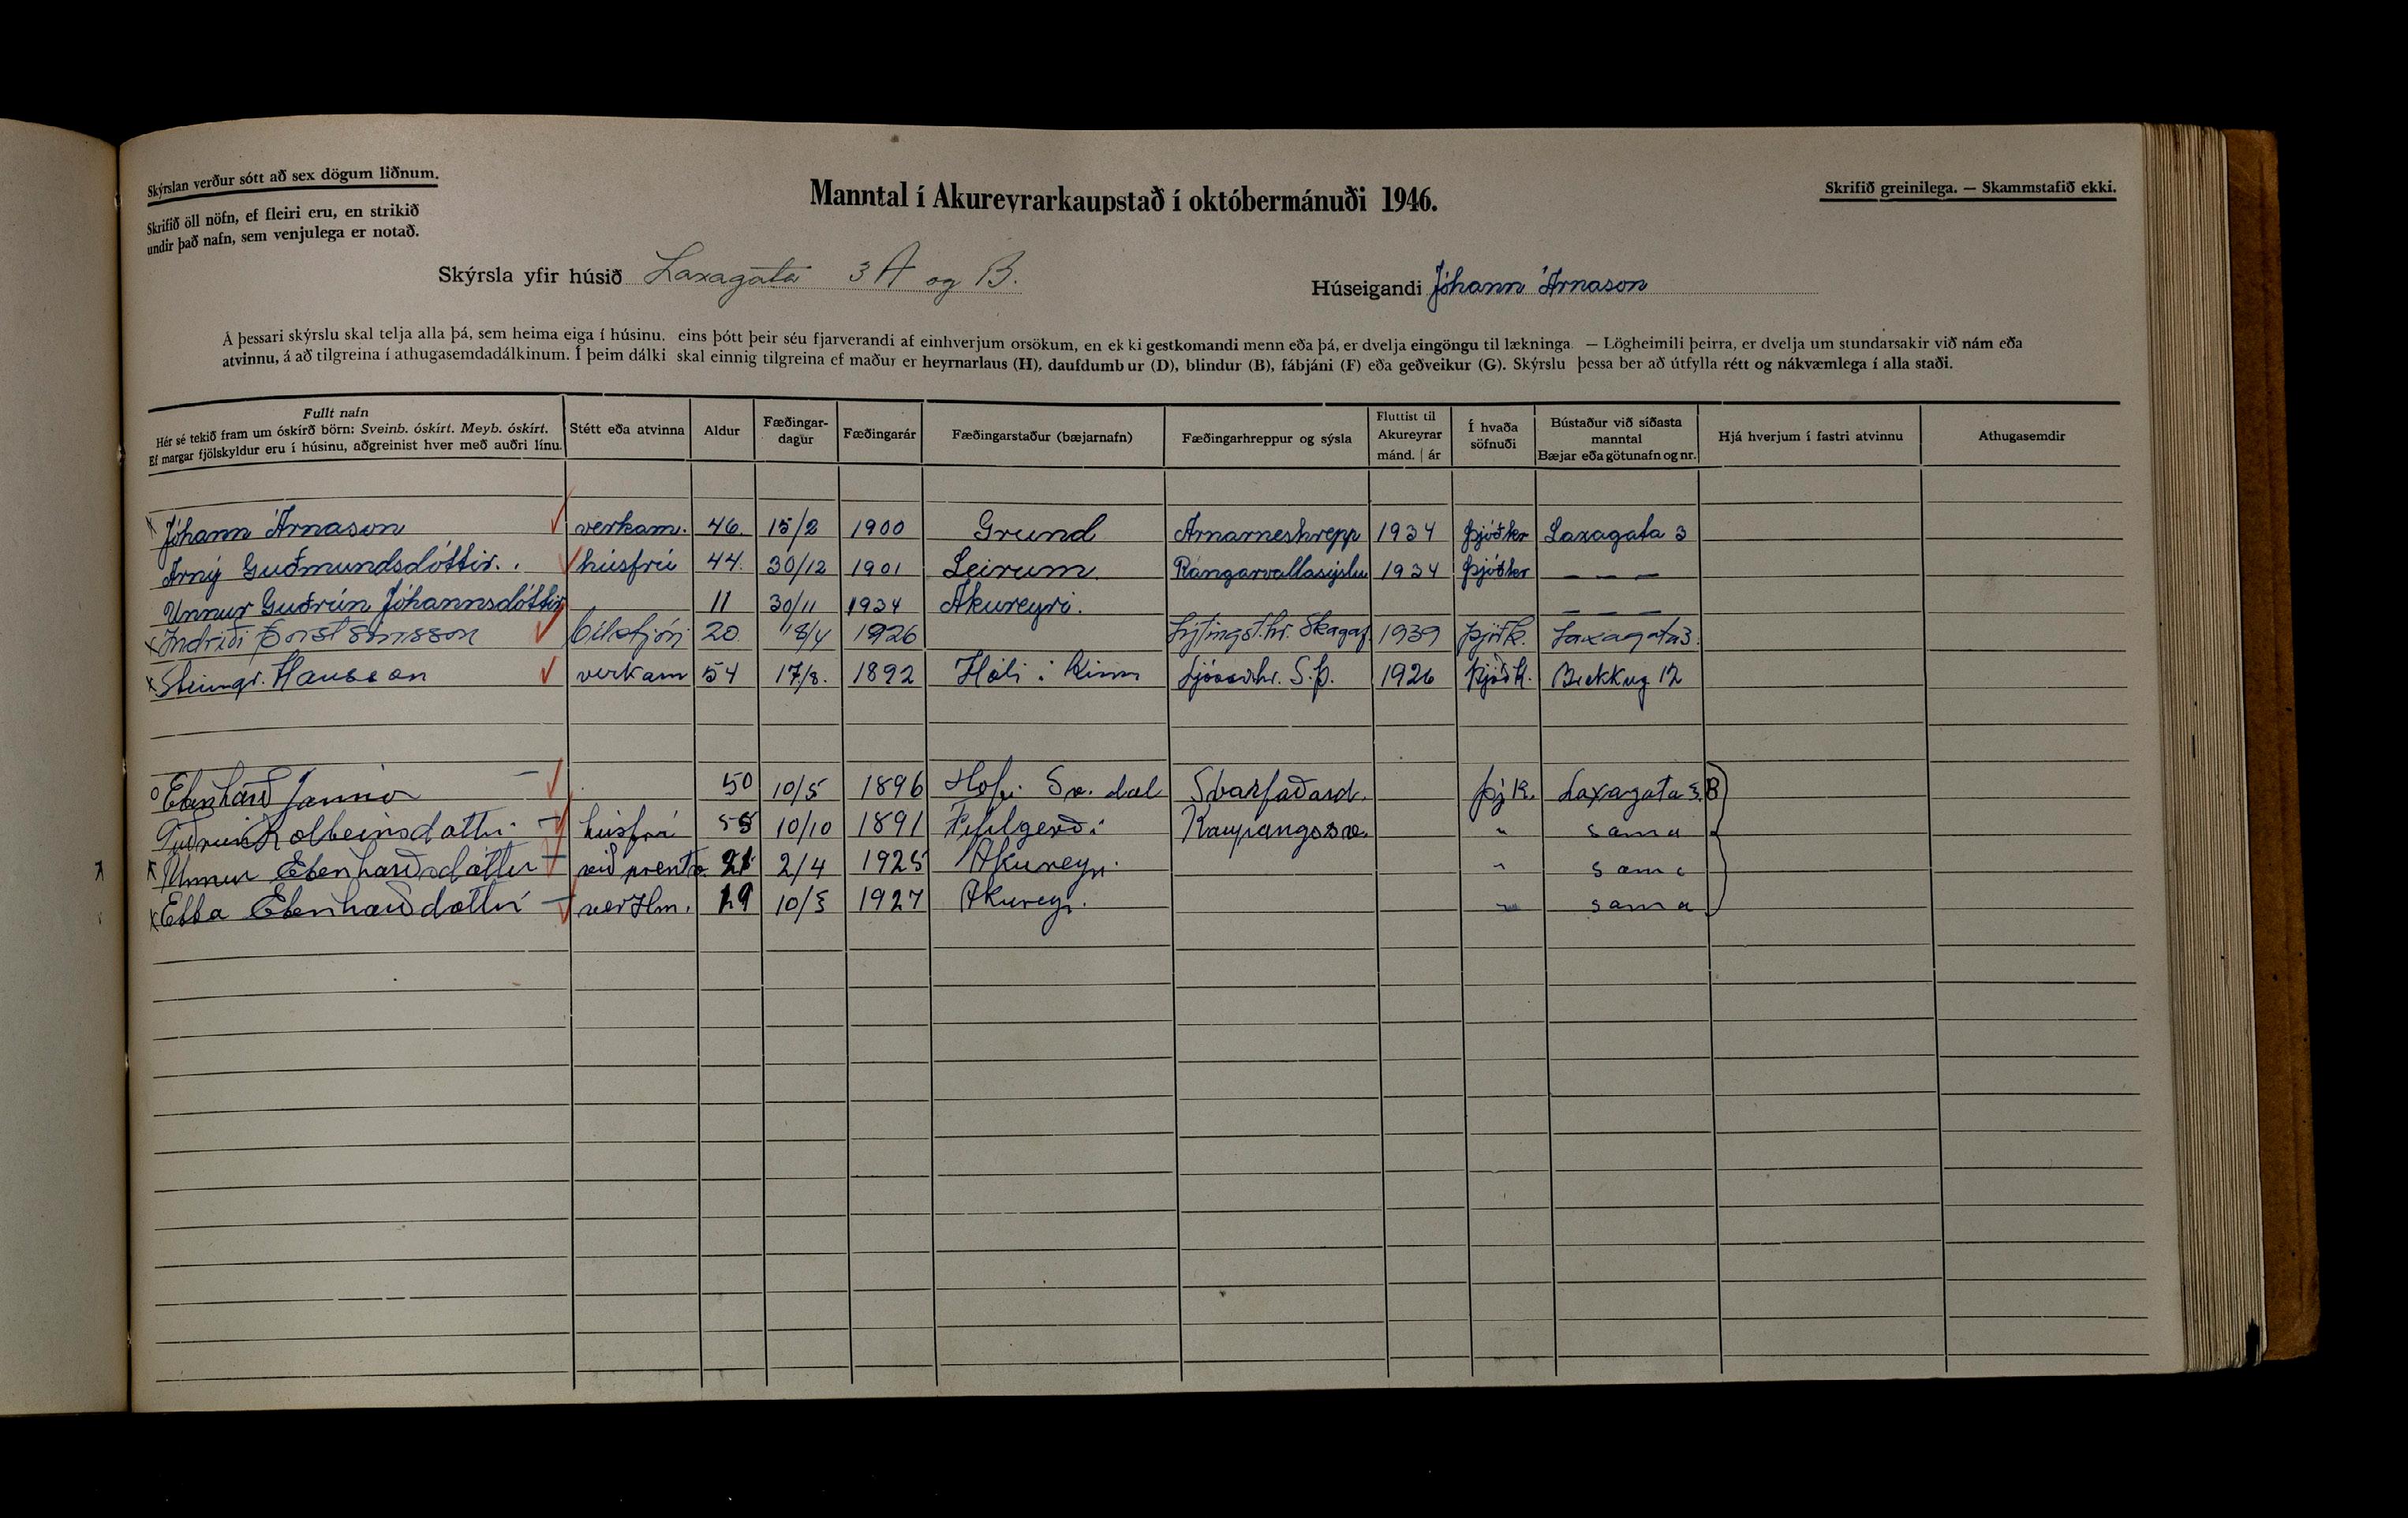 Skýrslan verður sótt að sex dögum liðnum.
Skrifið öll nöfn, ef fleiri eru, en strikið
undir það nafn, sem venjulega er notað.
Manntal í Akureyrarkaupstað í októbermánuði 1946.
Skrifið greinilega. — Skammstafið ekki.
Skýrsla yfir húsið Laxagata 3 A og B.
Húseigandi Jóhann Árnason
Á þessari skýrslu skal telja alla þá, sem heima eiga í húsinu. eins þótt þeir séu fjarverandi af einhverjum orsökum, en ekki gestkomandi menn eða þá, er dvelja eingöngu til lækninga. — Lögheimili þeirra, er dvelja um stundarsakir við nám eða
atvinnu, á að tilgreina í athugasemdadálkinum. Í þeim dálki skal einnig tilgreina ef maður er heyrnarlaus (H), daufdumbur (D), blindur (B), fábjáni (F) eða geðveikur (G). Skýrslu þessa ber að útfylla rétt og nákvæmlega í alla staði.
Fullt nafn
Hér sé tekið fram um óskírð börn: Sveinb. óskírt. Meyb. óskírt.
Ef margar fjölskyldur eru í húsinu, aðgreinist hver með auðri línu.
Stétt eða atvinna
Aldur
Fæðingar-
dagur
Fæðingarár
Fæðingarstaður (bæjarnafn)
Fæðingarhreppur og sýsla
Fluttist til
Akureyrar
mánd. | ár
Í hvaða
söfnuði
Bústaður við síðasta
manntal
Bæjar eða götunafn og nr.
Hjá hverjum í fastri atvinnu
Athugasemdir
Jóhann Árnason verkam. 46 15/2 1900 Grund Arnarneshrepp 1934 þjóðkr Laxagata 3
Árný Guðmundsdóttir. húsfrú 44. 30/12 1901 Leirum Rangarvallasýslu 1934 þjóðkr — — —
Unnur Guðrún Jóhannsdóttir 11 30/11 1934 Akureyri. — — —
Indriði 20. 18/4 1926 Lýtingst.hr. Skagaf. 1939 þjóðk. Laxagata 3.
Steingr. Hansson verkam 54 17/8. 1892 Hóli í Kinn Ljósav.hr. S.Þ. 1926 þjóðk. Brekkug 12
50 10/5 1896 Hofi Sv. dal Svarfaðard. þj k. Laxagata 3.B
Guðrún Kolbeinsdottir húsfrú 55 10/10 1891 Kaupangssv. " sama
Unnur Ebenharðsdóttir við prentv. 21 2/4 1925 Akureyri " sama
Ebba Ebenharðdottir verslm. 19 10/5 1927 Akureyr. " sama